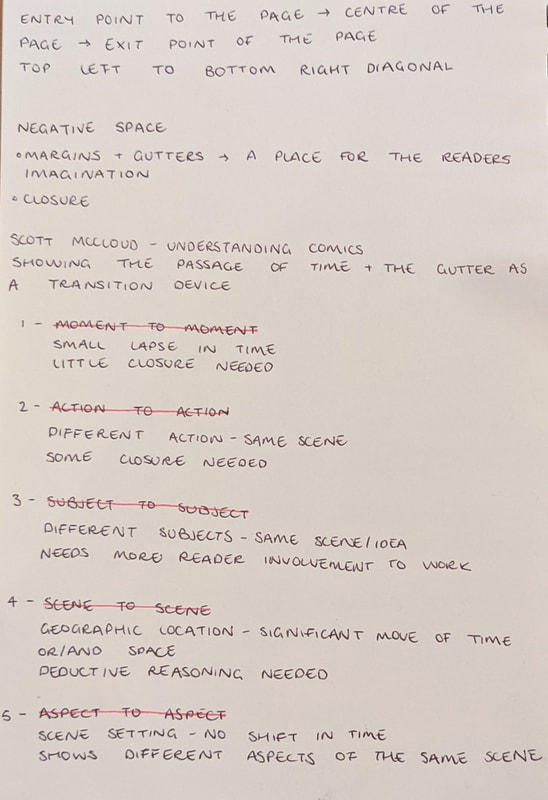 ENTRY POINT TO THE PAGE → CENTRE OF THE
PAGE → EXIT POINT OF THE PAGE
TOP LEFT TO BOTTOM RIGHT DIAGONAL
NEGATIVE SPACE
• MARGINS + GUTTERS → A PLACE FOR THE READERS
IMAGINATION
• CLOSURE
SCOTT MCCLOUD - UNDERSTANDING COMICS
SHOWING THE PASSAGE OF TIME + THE GUTTER AS
A TRANSITION DEVICE
1 - MOMENT TO MOMENT
SMALL LAPSE IN TIME
LITTLE CLOSURE NEEDED
2 - ACTION TO ACTION
DIFFERENT ACTION - SAME SCENE
SOME CLOSURE NEEDED
3 - SUBJECT TO SUBJECT
DIFFERENT SUBJECTS - SAME SCENE/IDEA
NEEDS MORE READER INVOLVEMENT TO WORK
4 - SCENE TO SCENE
GEOGRAPHIC LOCATION - SIGNIFICANT MOVE OF TIME
OR/AND SPACE
DEDUCTIVE REASONING NEEDED
5 - ASPECT TO ASPECT
SCENE SETTING - NO SHIFT IN TIME
SHOWS DIFFERENT ASPECTS OF THE SAME SCENE